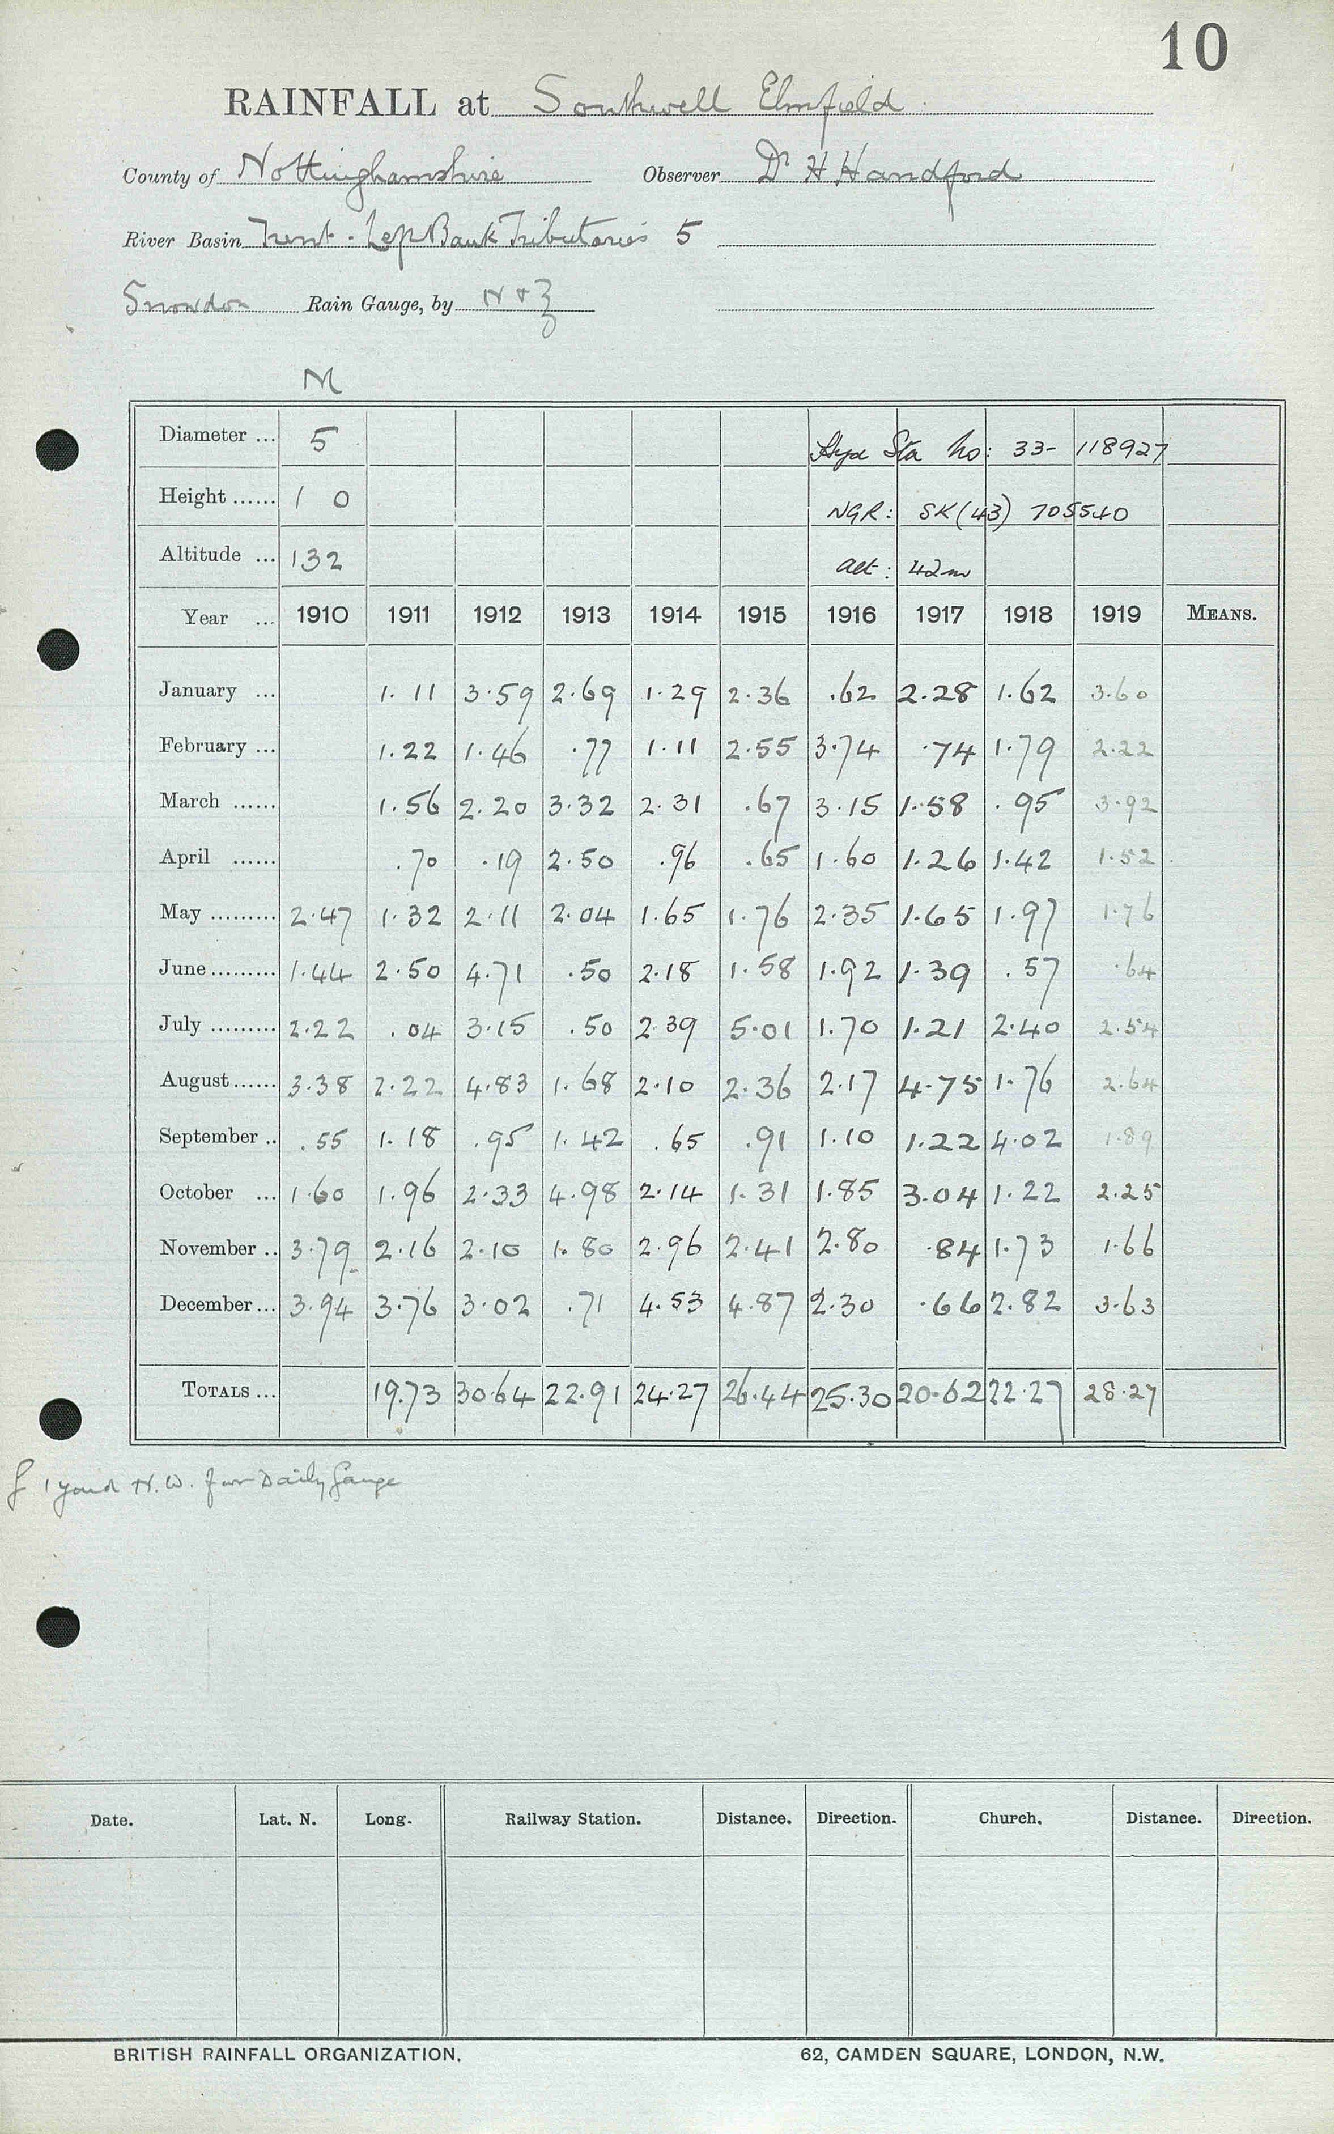 10
RAINFALL at Southwell Elmfield
County of Nottinghamshire Observer Dr H Handford
River Basin Trent - Left Bank Tributaries 5
Snowdon Rain Gauge, by N & Z
M
Diameter ... 5 Hyd Sta No: 33- 118927
Height ...... 1 0 NGR: SK(43) 705540
Altitude ... 132 alt: 42m
Year ... 1910 1911 1912 1913 1914 1915 1916 1917 1918 1919 MEANS.
January ... 1.11 3.59 2.69 1.29 2.36 .62 2.28 1.62 3.60
February ... 1.22 1.46 .77 1.11 2.55 3.74 .74 1.79 2.22
March ...... 1.56 2.20 3.32 2.31 .67 3.15 1.58 .95 3.92
April ...... .70 .19 2.50 .96 .65 1.60 1.26 1.42 1.52
May ......... 2.47 1.32 2.11 2.04 1.65 1.76 2.35 1.65 1.97 1.76
June ......... 1.44 2.50 4.71 .50 2.18 1.58 1.92 1.39 .57 .64
July ......... 2.22 .04 3.15 .50 2.39 5.01 1.70 1.21 2.40 2.54
August ...... 3.38 2.22 4.83 1.68 2.10 2.36 2.17 4.75 1.76 2.64
September .. .55 1.18 .95 1.42 .65 .91 1.10 1.22 4.02 1.89
October ... 1.60 1.96 2.33 4.98 2.14 1.31 1.85 3.04 1.22 2.25
November .. 3.79 2.16 2.10 1.80 2.96 2.41 2.80 .84 1.73 1.66
December ... 3.94 3.76 3.02 .71 4.53 4.87 2.30 .66 2.82 3.63
TOTALS ... 19.73 30.64 22.91 24.27 26.44 25.30 20.62 22.27 28.27
1 yard N.W. from Daily Gauge
Date. Lat. N. Long. Railway Station. Distance. Direction. Church. Distance. Direction.
BRITISH RAINFALL ORGANIZATION. 62, CAMDEN SQUARE, LONDON, N.W.